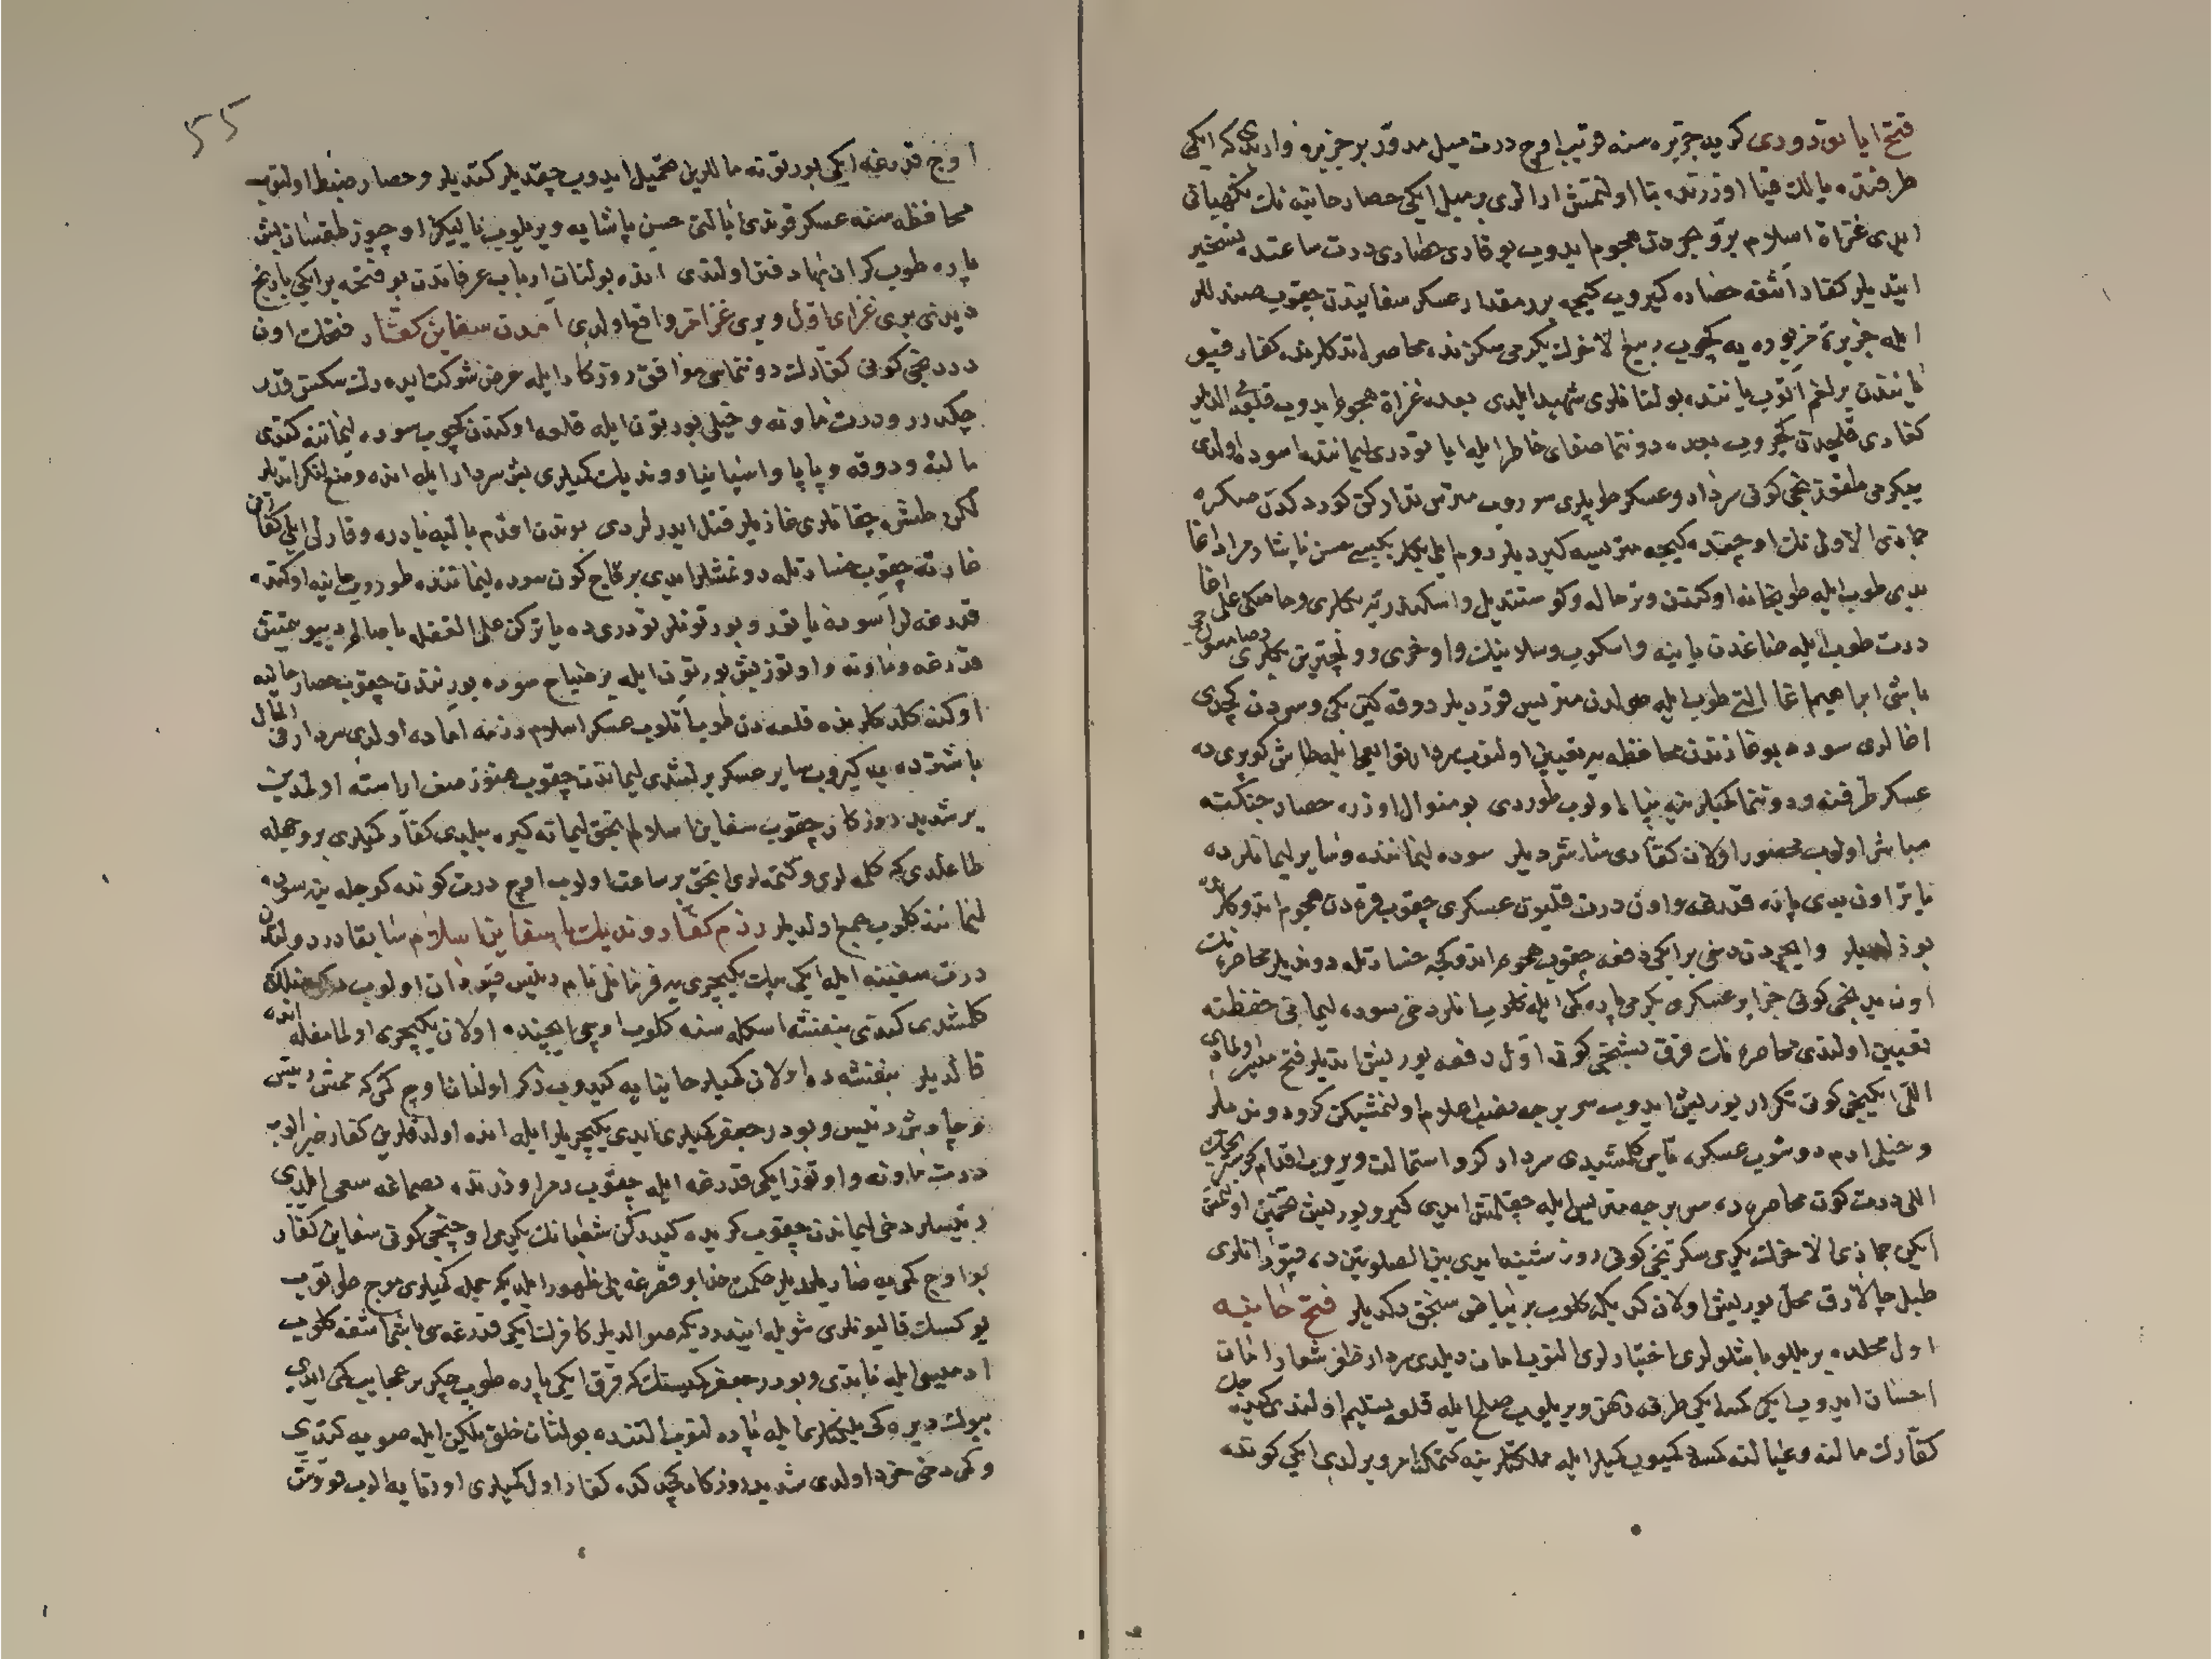 فتح ایا تودوری کرید جزیره سنه قریب اوچ درت میل مدور بر جزیره واردی که ایکی
طرفنده یالك قیا اوزرنده بنا اولنمش ارالری بر میل ایکی حصار حانیه نك نکهبانی
ایدی غزاة اسلام بر و بحردن هجوم ایدوب یوقاری حصاری درت ساعتده تسخیر
ایتدیلر کفار اشغه حصاره کیروب کیجه بر مقدار عسکر سفایندن چقوب صندللر
ایله جزیرۀ مزبوره یه کچوب ربیع الاخرك یکرمی سکزنده محاصره ایتدکلرنده کفار قپو
یانندن بر لغم اتوب یاننده بولنانلری شهید ایلدی بعده غزاة هجوم ایدوب قلعه یی الدیلر
کفاری قلیچدن کچوروب بعده دوننما صفای خاطر ایله ایا تودوری لیماننده اسوده اولدی
یکرمی طقوزنجی کونی سردار و عسکر طوپلری سوروب متریس تدارکن کوردکدن صکره
جمادی الاولی نك اوچنده کیجه متریسه کیردیلر روم ایلی بکلربکیسی حسن پاشا و مراد اغا
یدی طوب ایله طوپخانه اوکندن و ... وکوستندیل و اسکندریه بکلری و حاصکی علی اغا
درت طوب ایله صاغدن یانینه و اسکوب و سلانیك و اوخری و ... بکلری و صامسونجی
باشی ابراهیم اغا التی طوب ایله صولدن متریس قوردیلر دوقه کین بکی و سوردن کچدی
اغالری سوده بوغازندن محافظه یه تعیین اولنوب سردار ... طاش کوپری ده
عسکر طرفنه و دوننما کمیلرینه پناه اولوب طوردی بو منوال اوزره حصار جنکنه
مباشر اولوب محصور اولان کفاری شاشردیلر سوده لیماننده و سایر لیمانلرده
یاتر اون یدی پاره قدرغه و اون درت قلیون عسکری چقوب قره دن هجوم ایتدوکلرنده
بوزدیلر و ایچردن دخی بر ایکی دفعه چقوب هجوم ایتدوکجه خسارتله دوندیلر محاصره نك
اون یدنجی کونی جزایر عسکری یکرمی پاره کمی ایله کلوب انلر دخی سوده لیمانی حفظنه
تعیین اولندی محاصره نك قرق بشنجی کونی اول دفعه یوریش ایتدیلر فتح میسر اولمادی
اللی ایکنجی کون تکرار یوریش ایدوب سر برجه نصب اعلام اولنمشیکن کرو دوندیلر
و خیلی ادم دوشوب عسکره یاس کلمشیدی سردار کرو استمالت ویروب اقدام کوستردی
اللی درت کون محاصره ده سر برجه متریس ایله چقلمش ایدی کیرو یوریش مقتضی اولمش
ایکن جماذی الاخرك یکرمی سکزنجی کونی روز شنبه ایدی بین الصلوتین ده قپودانلری
طبل چالارق محل یوریش اولان کدیکه کلوب بر بیاض سنجق دکدیلر فتح حانیه
اول محلده بللو باشلولری اختیارلری النوب امان دیلدی سردار ظفر شعار امان
احسان ایدوب ایکی کمسه ایکی طرفه رهن ویریلوب صلح ایله قلعه تسلیم اولندی کیدیجك
کفارك مالنه و عیالنه کمسه دکمیوب کمیلر ایله مملکتلرینه کتمك امر ویرلدی ایکی کونده
۵۵
اوچ قدرغه ایکی بورتونه ماللرین تحمیل ایدوب چقدیلر کتدیلر و حصار ضبط اولنوب
محافظه سنه عسکر قوندی ایالتی حسن پاشایه ویریلوب یالیکز اوچیوز طقسان بش
پاره طوب کران بها دفتر اولندی انده بولنان ارباب عرفاندن بو فتحه بر ایکی تاریخ
دیدی بری غزای اول و بری غزا ... واقع اولدی آمدن سفاین کفار فتحك اون
دردنجی کونی کفارك دوننماسی موافق روزکار ایله عرض شوکت ایدهرك سکسن قدر
چکدرر و درت ماونه و خیلی بورتون ایله قلعه اوکندن کچوب سوده لیماننه کتدی
مالته و دوقه و پاپا و اسپانیا و وندیك کمیلری بش سردار ایله انده وضع لنکر ایتدیلر
لکن طشره چقانلری غازیلر قتل ایدرلردی بوندن اقدم بالیه بادره و قارلی ایلی کفاری
غارته چقوب خسارتله دونمشلر ایدی بر قاچ کون سوده لیماننده طوروب حانیه اوکنده
قدرغه لر اسوده یاتور و بورتونلر تودوری ده یاترکن علی الغفله باصالم دییو یتمش
قدرغه و ماونه و اوتوز بش بورتون ایله بر صباح سوده بورنندن چقوب حصار حانیه
اوکنه کلدکلرنده قلعه دن طوب آتلوب عسکر اسلام رزمه اماده اولدی سردار فی الحال
باشترده یه کیروب سایر عسکر برلشدی لیماندن چقوب هنوز صف اراسته اولمدین
بر شدید روزکار چقوب سفاین اسلام انجق لیمانه کیره بیلدی کفار کمیلری بر وجهله
طاغلدی که کلمه لری و کتمه لری انجق بر ساعت اولوب اوچ درت کونده کوجله ینه سوده
لیماننه کلوب جمع اولدیلر رزم کفار وندیك با سفاین اسلام سابقا در دولتدن
درت سفینه ایله ایکی بیك یکیچری یه فرمانلی نام رئیس قپودان اولوب ...
کلشدی کندی بنفشه اسکله سنه کلوب اوچی ایچنده اولان یکیچری اولمامغله انده
قالدیلر بنفشه ده اولان کمیلر حانیایه کیدوب ذکر اولنان اوچ کمی که ممش رئیس
و چاوش رئیس و بودر جعفر کمیلری ایدی یکیچریلر ایله انده اولدقلرین کفار خبر الوب
درت ماونه و اوتوز ایکی قدرغه ایله چقوب رمر اوزرنده بصماغه سعی ایلدی
رئیسلر دخی لیماندن چقوب کریده کیدرکن شعبانك یکرمی اوچنجی کونی سفاین کفار
بو اوچ کمی یه صاریلدیلر حکمت خدا بر فرتنه یلی ظهور ایلدی که جمله کمیلری موج طوتوب
یوکسك قالیونلری شویله ایندردی که صو الدیلر کافرك ایکی قدرغه سی باشی اشغه کلوب
ادمیسی ایله غایتدی و بودر جعفر کمیسنك که قرق ایکی پاره طوب چکر بر عجایب کمی ایدی
بیوك دیره کی یلکنلری ایله پاره لنوب التنده بولنان خلق یلکن ایله صویه کتدی
و کمی دخی خرد اولدی شدید روزکار کچدکده کفار اول کمیلری اورتایه الوب طوتوشدی